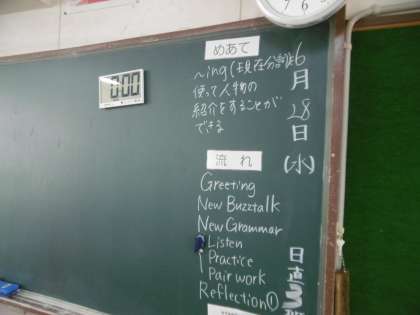 7 6 5
0:00
めあて
～ing(現在分詞)を
使って人物の
紹介をすることが
できる
流れ
Greeting
New Buzztalk
New Grammar
Listen
Practice
Pair work
Reflection①
6月28日(水)
日直 3班